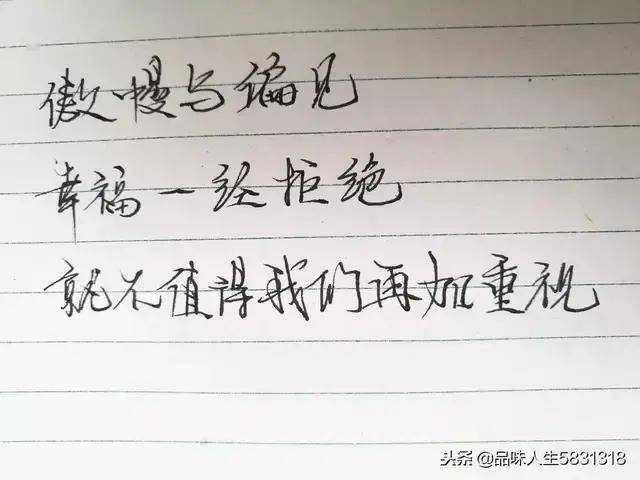 傲慢与偏见
幸福一经拒绝
就不值得我们再加重视
头条 @品味人生5831318